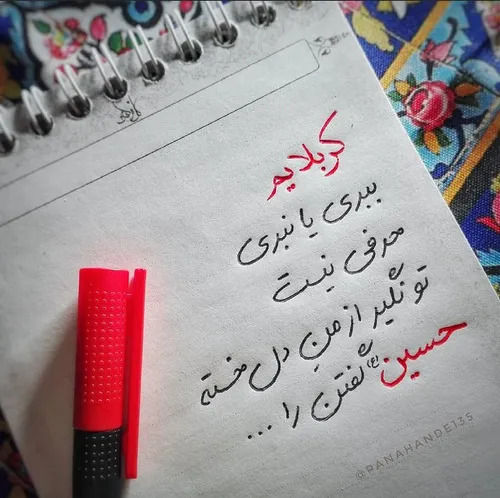 کربلایم
ببری یا نبری
حرفی نیست
تو نگیر از منِ دل خسته
حسین(ع) گفتن را ...
@PANAHANDE135